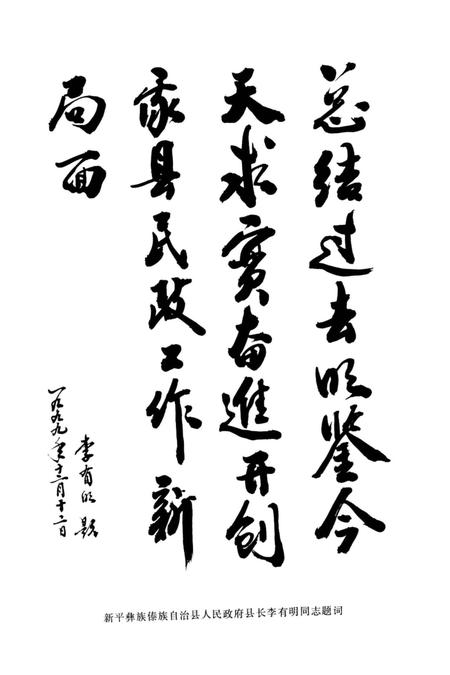 总结过去明鉴今
天求實奋進开创
我县民政工作新
局面
李有明题
一九九九年十二月十二日
新平彝族傣族自治县人民政府县长李有明同志题词